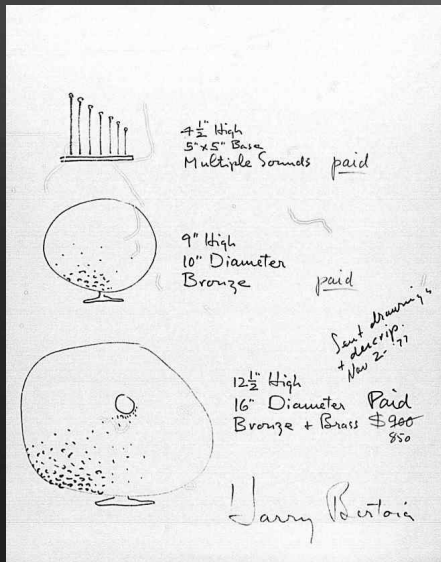 4½" High
5"x5" Base
Multiple Sounds paid
9" High
10" Diameter
Bronze paid
Sent drawing
+ descrip.
Nov 2- 77
12½" High
16" Diameter Paid
Bronze + Brass $900
850
Harry Bertoia